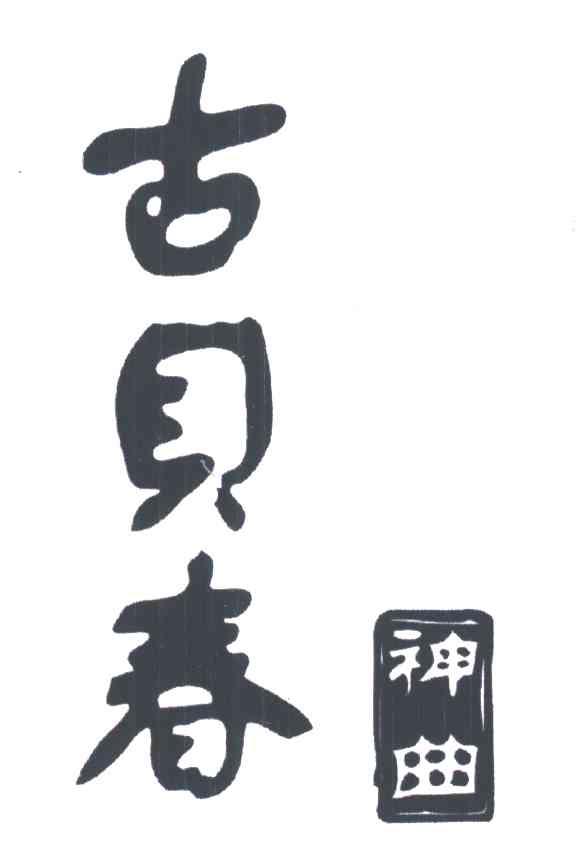 古贝春
神曲